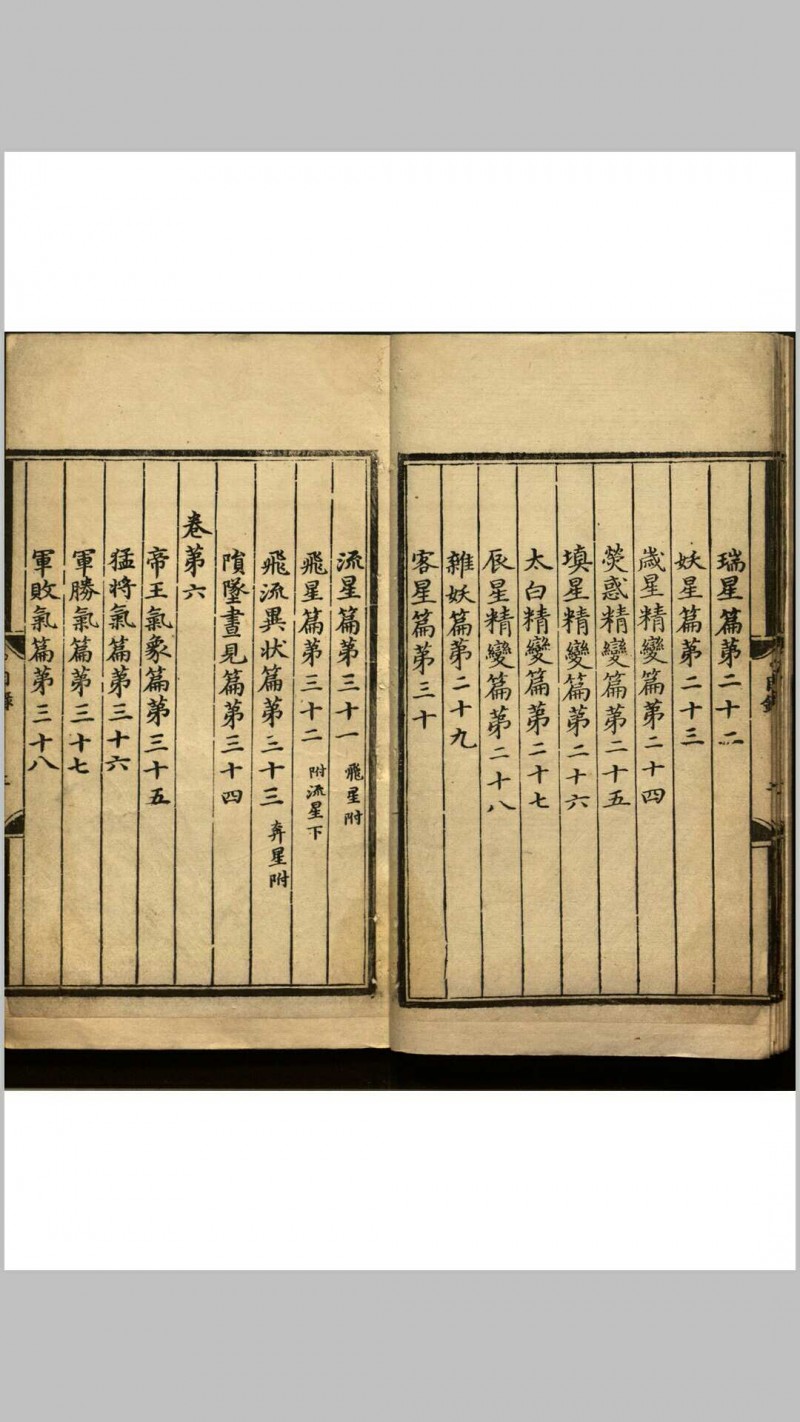 瑞星篇第二十二
妖星篇第二十三
歳星精變篇第二十四
熒惑精變篇第二十五
填星精變篇第二十六
太白精變篇第二十七
辰星精變篇第二十八
雜妖篇第二十九
客星篇第三十
流星篇第三十一 飛星附
飛星篇第三十二 附流星下
飛流異状篇第三十三 奔星附
隕墜晝見篇第三十四
卷第六
帝王氣象篇第三十五
猛将氣篇第三十六
軍勝氣篇第三十七
軍敗氣篇第三十八